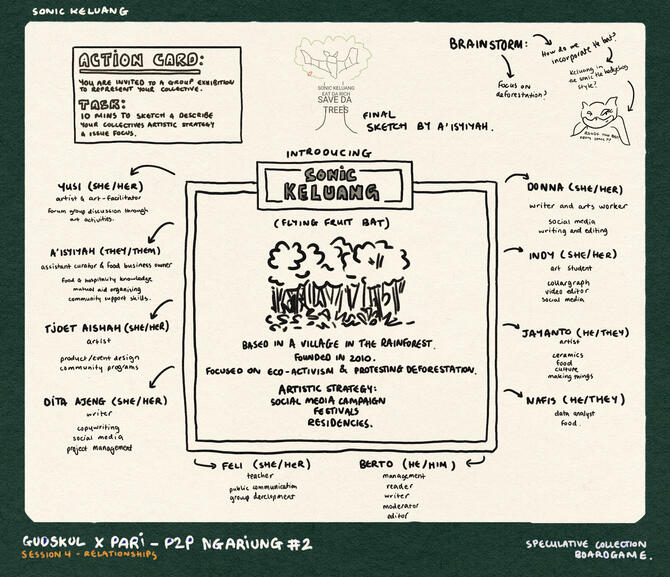 SONIC KELUANG
ACTION CARD:
YOU ARE INVITED TO A GROUP EXHIBITION
TO REPRESENT YOUR COLLECTIVE.
TASK:
10 MINS TO SKETCH & DESCRIBE
YOUR COLLECTIVES ARTISTIC STRATEGY
& ISSUE FOCUS.
SONIC KELUANG
EAT DA RICH
SAVE DA
TREES
FINAL
SKETCH BY A'ISYIYAH.
BRAINSTORM:
How do we
incorporate the bat?
Focus on
deforestation?
Keluang in
the sonic the hedgehog
style?
INTRODUCING
SONIC
KELUANG
(FLYING FRUIT BAT)
BASED IN A VILLAGE IN THE RAINFOREST.
FOUNDED IN 2010.
FOCUSED ON ECO-ACTIVISM & PROTESTING DEFORESTATION.
ARTISTIC STRATEGY:
SOCIAL MEDIA CAMPAIGN
FESTIVALS
RESIDENCIES.
YUSI (SHE/HER)
artist & art-facilitator
Forum group discussion through
art activities.
A'ISYIYAH (THEY/THEM)
assistant curator & food business owner
food & hospitality knowledge
mutual aid organising
community support skills.
TJOET AISHAH (SHE/HER)
artist
product/event design
community programs
DITA AJENG (SHE/HER)
writer
copywriting
social media
project management
DONNA (SHE/HER)
writer and arts worker
social media
writing and editing
INDY (SHE/HER)
art student
collargraph
video editor
social media
JAYANTO (HE/THEY)
artist
ceramics
food
culture
making things
NAFIS (HE/THEY)
data analyst
food.
FELI (SHE/HER)
teacher
public communication
group development
BERTO (HE/HIM)
management
reader
writer
moderator
editor
GUDSKUL X PARI – P2P NGARIUNG #2
SESSION 4 - RELATIONSHIPS
SPECULATIVE COLLECTION
BOARDGAME.